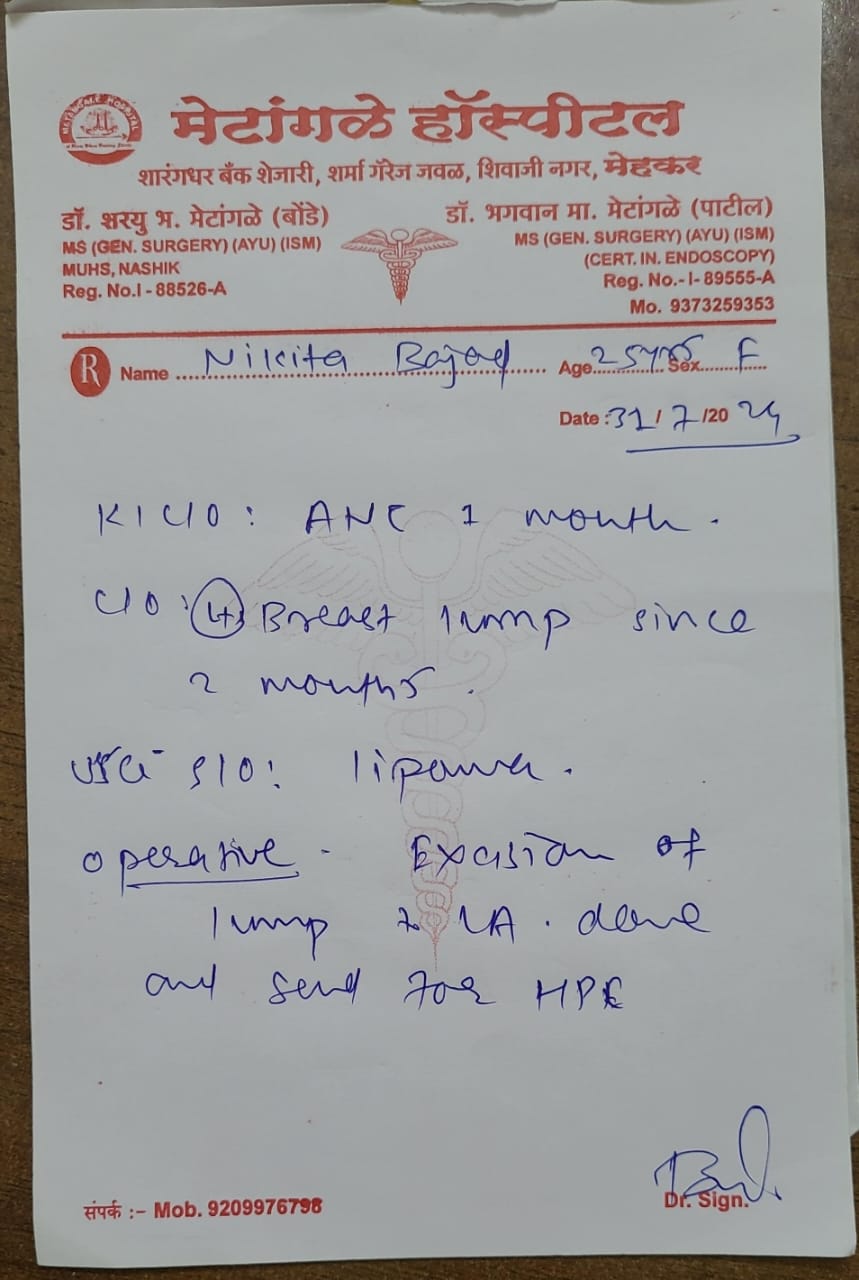 मेटांगळे हॉस्पीटल
शारंगधर बँक शेजारी, शर्मा गॅरेज जवळ, शिवाजी नगर, मेहकर
डॉ. शरयु भ. मेटांगळे (बोंडे)
MS (GEN. SURGERY) (AYU) (ISM)
MUHS, NASHIK
Reg. No.I - 88526-A
डॉ. भगवान मा. मेटांगळे (पाटील)
MS (GEN. SURGERY) (AYU) (ISM)
(CERT. IN. ENDOSCOPY)
Reg. No.-I- 89555-A
Mo. 9373259353
R Name Nikita Age 25yrs Sex F
Date : 31/7/2024
K/C/O : ANC 1 month.
C/O : Lt Breast lump since
2 months.
S/O : lipoma.
operative - Excision of
lump LA. done
and send for HPE
Dr. Sign.
संपर्क :- Mob. 9209976798